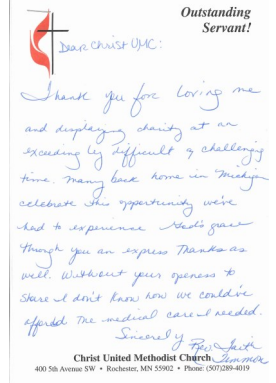 Outstanding
Servant!
Dear Christ UMC:
Thank you for loving me
and displaying charity at an
exceeding ly difficult & challenging
time. Many back home in Michigan
celebrate this opportunity we've
had to experience God's grace
through you an express Thanks as
well. Without your openess to
share I don't know how we could've
afford the medical care I needed.
Sincerely
Rev. Faith
Christ United Methodist Church
400 5th Avenue SW • Rochester, MN 55902 • Phone: (507)289-4019